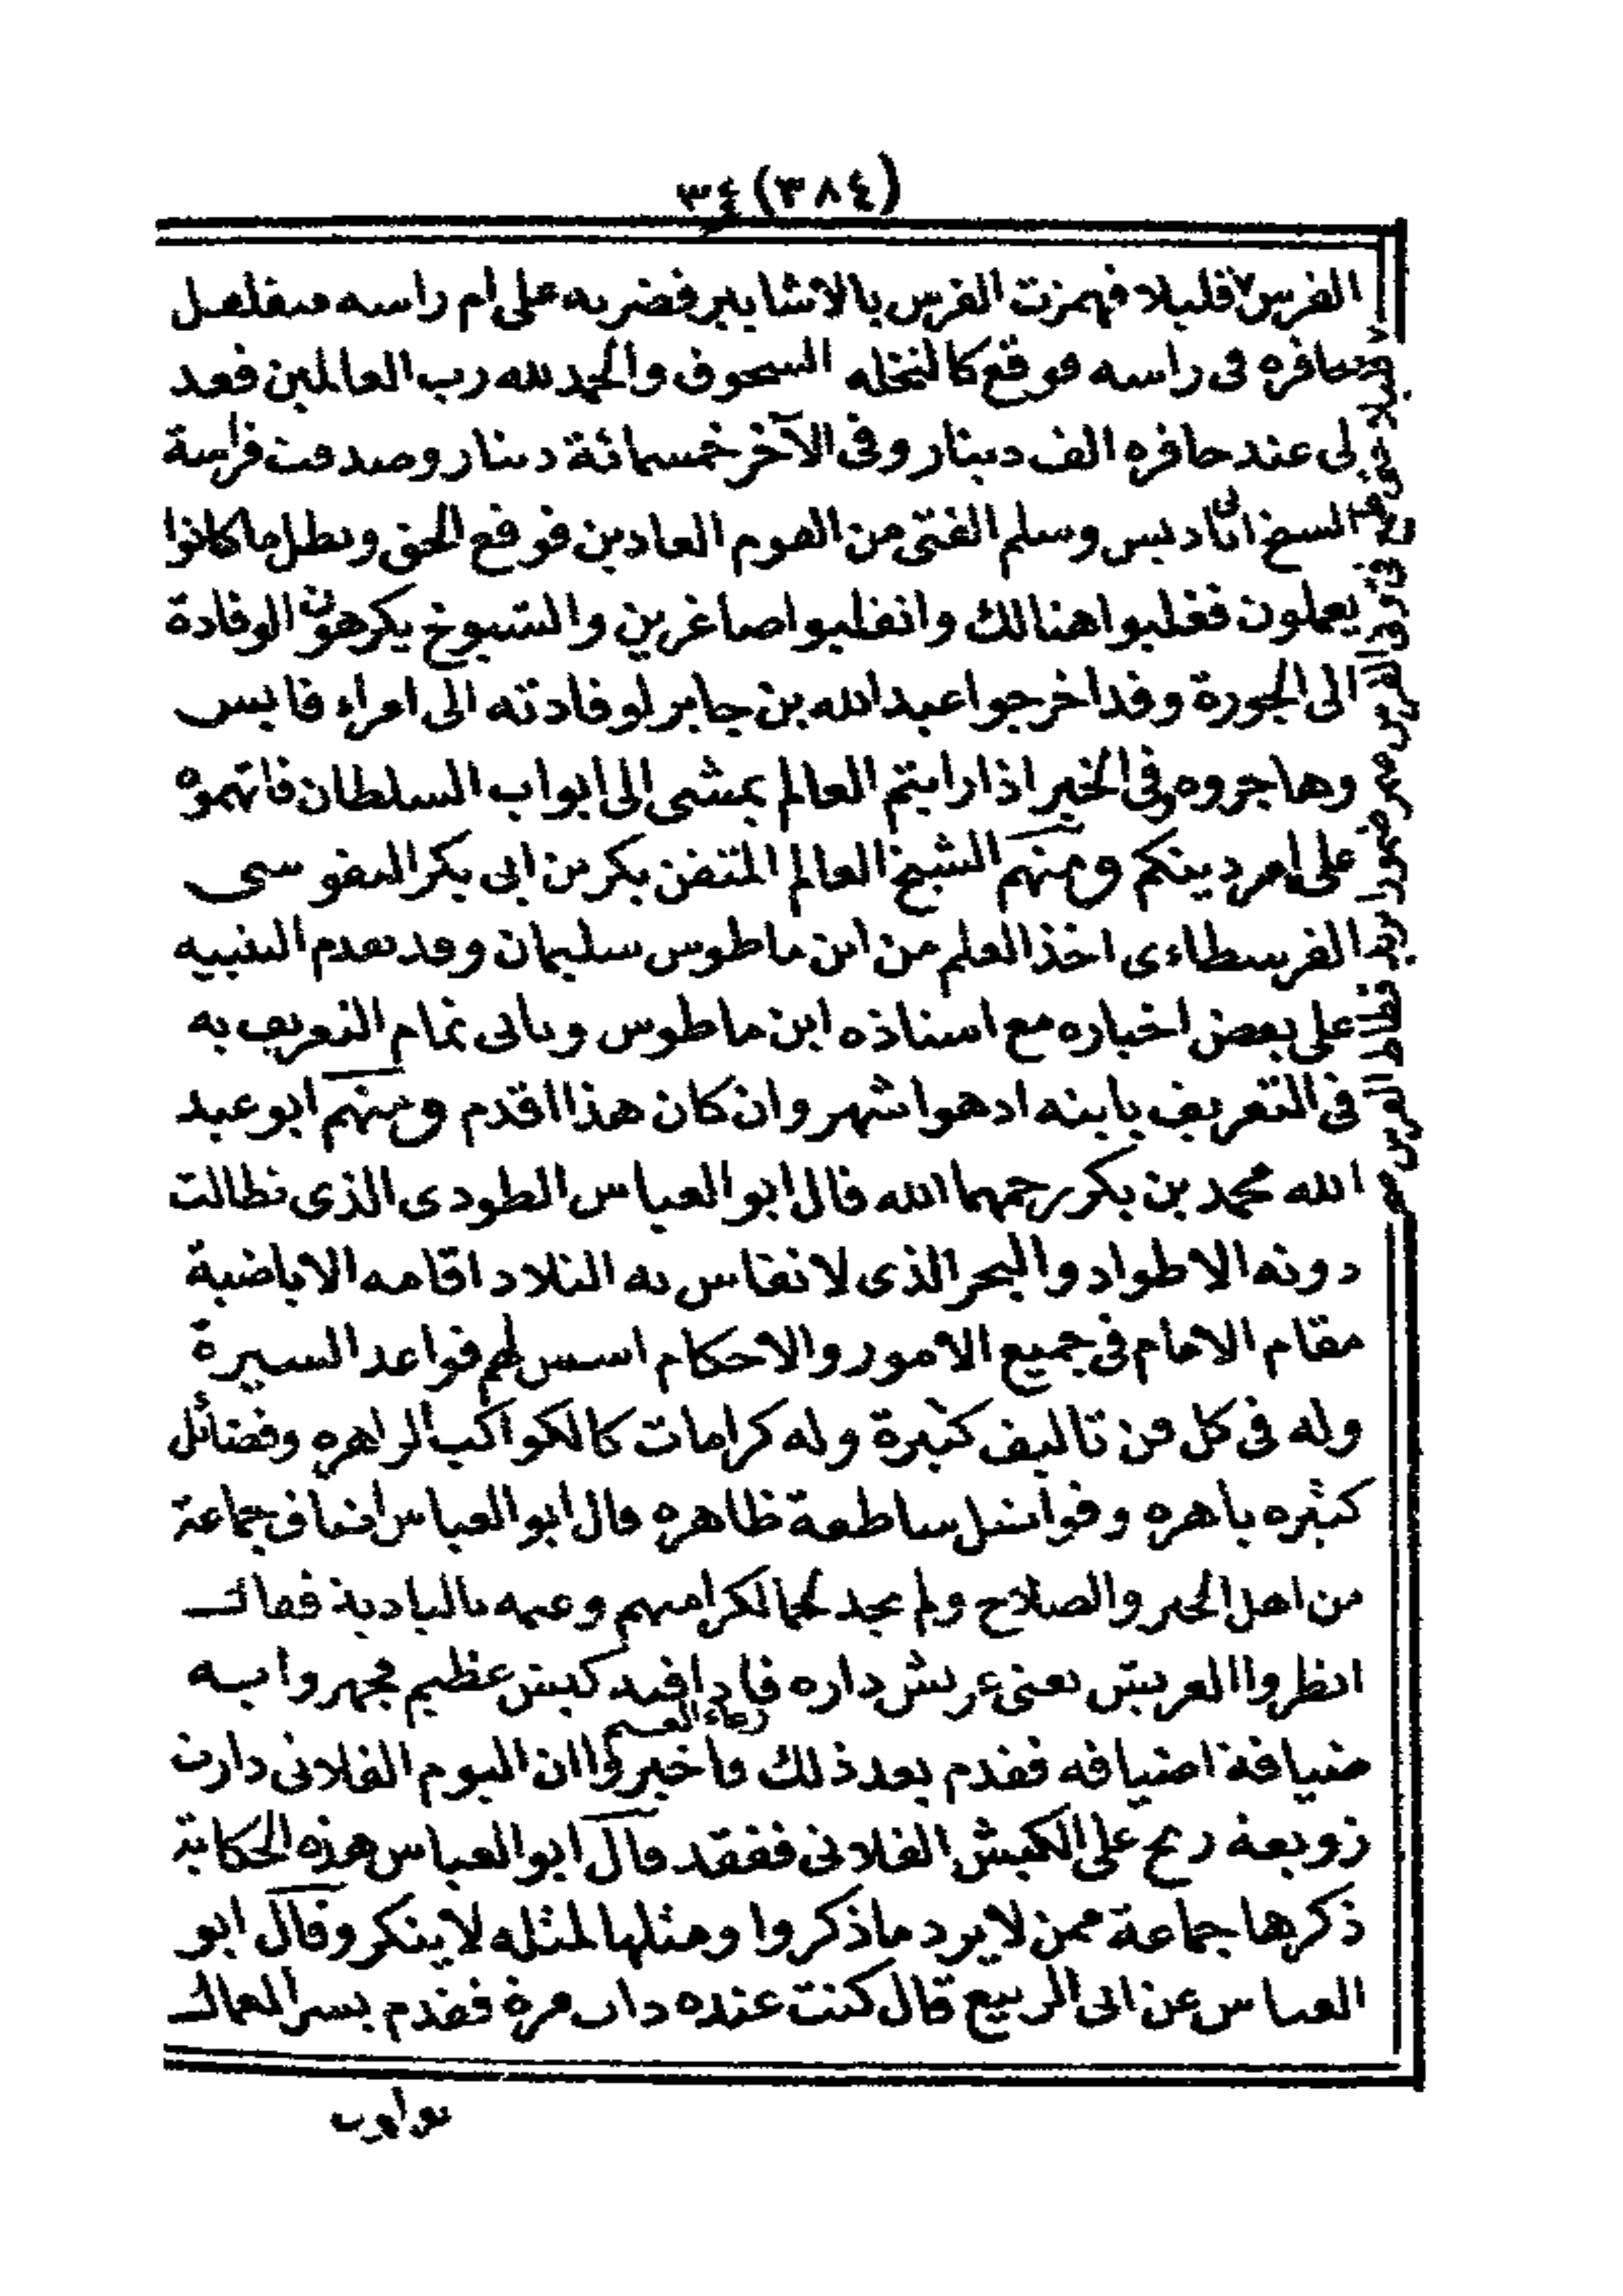 (٣٨٤) ٣٤
الفرس قليلا فهمزت الفرس بالاشابير فضربه على ام راسه
حافره في راسه فوقع كالنخله السحوق والحمد لله رب العالمين فعد
لى عند حافره الف دينار وفى الآخر خمسمائة دينار وصدقت فراسة
السيخ وسلم الفتى من القوم العادين فوقع الحق وبطل ما كانوا
يعملون فغلبوا هنالك وانقلبوا صاغرين والشيوخ يكرهون الوفادة
الى الجورة وقد اخرجوا عبد الله بن جابر لوفادته الى امراء قابس
وهاجروه وفى الخبر اذا رايتم العالم يمشى الى ابواب السلطان فاتهموه
على امر دينكم ومنهم الشيخ العالم المتفنن بكر بن ابى بكر النفوسى
الفرسطاءى اخذ العلم عن ابن ماطوس سليمان وقد تقدم التنبيه
على بعض اخباره مع استاذه ابن ماطوس وياتى تمام التعريف به
فى التعريف بابنه اذ هو اشهر وان كان هذا اقدم ومنهم ابو عبد
الله محمد بن بكر رحمهما الله قال ابو العباس الطود ى الذى تطالت
دونه الاطواد والبحر الذى لا تقاس به الثلاد اقامه الاباضية
مقام الامام فى جميع الامور والاحكام اسس لهم قواعد السيرة
وله فى كل فن تاليف كثيرة وله كرامات كالكواكب الزاهره وفضائل
كثيره باهره وفواضل ساطعة ظاهره قال ابو العباس اضاف جماعة
من اهل الخير والصلاح ولم يجد لحما لكرامتهم وغنمه بالبادية فقال
انظروا العريش يعنى عريش داره فاذا فيه كبش عظيم فجهروا به
ضيافة اضيافه فقدم بعد ذلك رعاء الغنم واخبروا ان اليوم الفلانى دارت
زوبعة ريح على الكبش الفلانى ففقد قال ابو العباس هذه الحكاية
ذكرها جماعة ممن لا يرد ما ذكروا ومثلها لمثله لا ينكر وقال ابو
العباس عن ابى الربيع قال كنت عنده ذات مرة فقدم